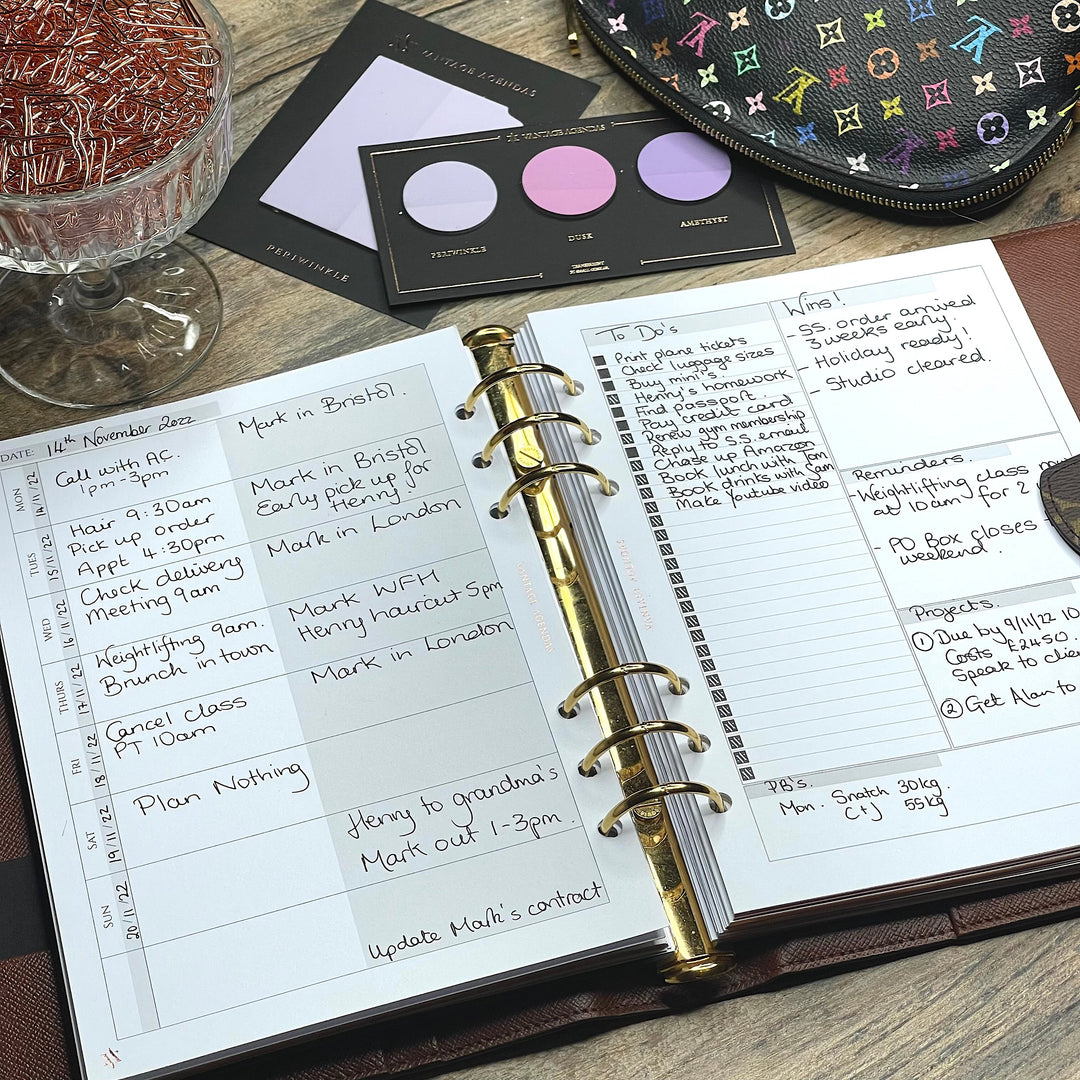 VANTAGE AGENDAS
PERIWINKLE
VANTAGE AGENDAS
PERIWINKLE
DUSK
AMETHYST
DATE: 14th November 2022
MON
14/11/22
Call with AC.
1pm-3pm
Mark in Bristol.
TUES
15/11/22
Hair 9:30am
Pick up order
Appt 4:30pm
Mark in Bristol
Early pick up for
Henry.
WED
16/11/22
Check delivery
Meeting 9am
Mark in London
THURS
17/11/22
Weightlifting 9am.
Brunch in town
Mark WFH
Henry haircut 5pm
FRI
18/11/22
Cancel class
PT 10am
Mark in London
SAT
19/11/22
Plan Nothing
Henry to grandma's
Mark out 1-3pm.
SUN
20/11/22
Update Mark's contract
VANTAGE AGENDAS
VANTAGE AGENDAS
To Do's
Print plane tickets
Check luggage sizes
Buy mini's
Henry's homework
Find passport.
Pay credit card
Renew gym membership
Reply to S.S. email
Chase up Amazon
Book lunch with Tom
Book drinks with Sam
Make Youtube video
Wins!
- S.S. order arrived
3 weeks early.
- Holiday ready!
- Studio cleared.
Reminders.
- Weightlifting class
at 10am for 2
- PO Box closes -
weekend.
Projects.
① Due by 9/11/22 10
Costs £2450.
Speak to
② Get Alan to
PB's.
Mon. Snatch 30kg.
C+J 55kg